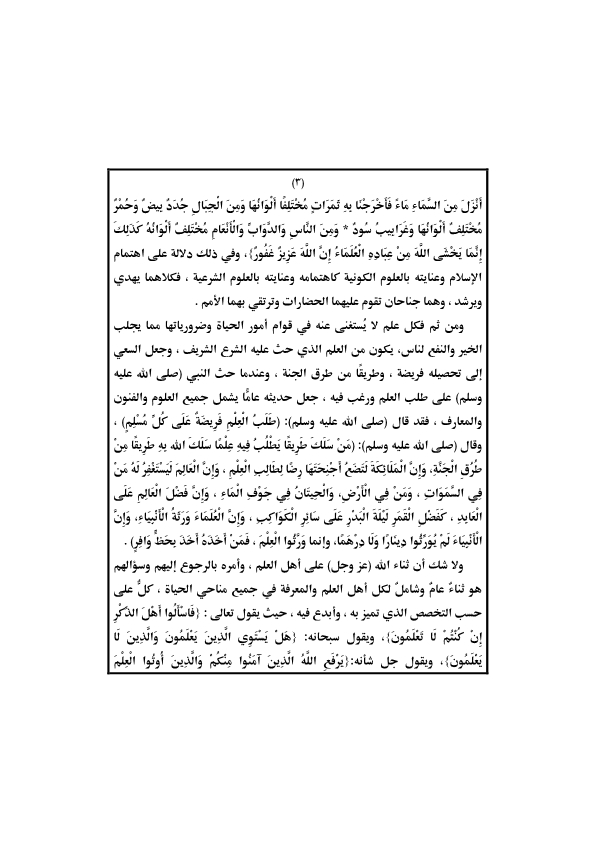 (٣)
أَنْزَلَ مِنَ السَّمَاءِ مَاءً فَأَخْرَجْنَا بِهِ ثَمَرَاتٍ مُخْتَلِفًا أَلْوَانُهَا وَمِنَ الْجِبَالِ جُدَدٌ بِيضٌ وَحُمْرٌ
مُخْتَلِفٌ أَلْوَانُهَا وَغَرَابِيبُ سُودٌ * وَمِنَ النَّاسِ وَالدَّوَابِّ وَالْأَنْعَامِ مُخْتَلِفٌ أَلْوَانُهُ كَذَلِكَ
إِنَّمَا يَخْشَى اللَّهَ مِنْ عِبَادِهِ الْعُلَمَاءُ إِنَّ اللَّهَ عَزِيزٌ غَفُورٌ}، وفي ذلك دلالة على اهتمام
الإسلام وعنايته بالعلوم الكونية كاهتمامه وعنايته بالعلوم الشرعية ، فكلاهما يهدي
ويرشد ، وهما جناحان تقوم عليهما الحضارات وترتقي بهما الأمم .
ومن ثم فكل علم لا يُستغنى عنه في قوام أمور الحياة وضرورياتها مما يجلب
الخير والنفع لناس، يكون من العلم الذي حث عليه الشرع الشريف ، وجعل السعي
إلى تحصيله فريضة ، وطريقًا من طرق الجنة ، وعندما حث النبي (صلى الله عليه
وسلم) على طلب العلم ورغب فيه ، جعل حديثه عامًّا يشمل جميع العلوم والفنون
والمعارف ، فقد قال (صلى الله عليه وسلم): (طَلَبُ الْعِلْمِ فَرِيضَةٌ عَلَى كُلِّ مُسْلِمٍ) ،
وقال (صلى الله عليه وسلم): (مَنْ سَلَكَ طَرِيقًا يَطْلُبُ فِيهِ عِلْمًا سَلَكَ الله بِهِ طَرِيقًا مِنْ
طُرُقِ الْجَنَّةِ، وَإِنَّ الْمَلَائِكَةَ لَتَضَعُ أَجْنِحَتَهَا رِضًا لِطَالِبِ الْعِلْمِ ، وَإِنَّ الْعَالِمَ لَيَسْتَغْفِرُ لَهُ مَنْ
فِي السَّمَوَاتِ ، وَمَنْ فِي الْأَرْضِ، وَالْحِيتَانُ فِي جَوْفِ الْمَاءِ ، وَإِنَّ فَضْلَ الْعَالِمِ عَلَى
الْعَابِدِ ، كَفَضْلِ الْقَمَرِ لَيْلَةَ الْبَدْرِ عَلَى سَائِرِ الْكَوَاكِبِ ، وَإِنَّ الْعُلَمَاءَ وَرَثَةُ الْأَنْبِيَاءِ، وَإِنَّ
الْأَنْبِيَاءَ لَمْ يُوَرِّثُوا دِينَارًا وَلَا دِرْهَمًا، وإنما وَرَّثُوا الْعِلْمَ ، فَمَنْ أَخَذَهُ أَخَذَ بِحَظٍّ وَافِرٍ) .
ولا شك أن ثناء الله (عز وجل) على أهل العلم ، وأمره بالرجوع إليهم وسؤالهم
هو ثناءٌ عامٌ وشاملٌ لكل أهل العلم والمعرفة في جميع مناحي الحياة ، كلٌّ على
حسب التخصص الذي تميز به ، وأبدع فيه ، حيث يقول تعالى : {فَاسْأَلُوا أَهْلَ الذِّكْرِ
إِنْ كُنْتُمْ لَا تَعْلَمُونَ}، ويقول سبحانه: {هَلْ يَسْتَوِي الَّذِينَ يَعْلَمُونَ وَالَّذِينَ لَا
يَعْلَمُونَ}، ويقول جل شأنه:{يَرْفَعِ اللَّهُ الَّذِينَ آمَنُوا مِنْكُمْ وَالَّذِينَ أُوتُوا الْعِلْمَ